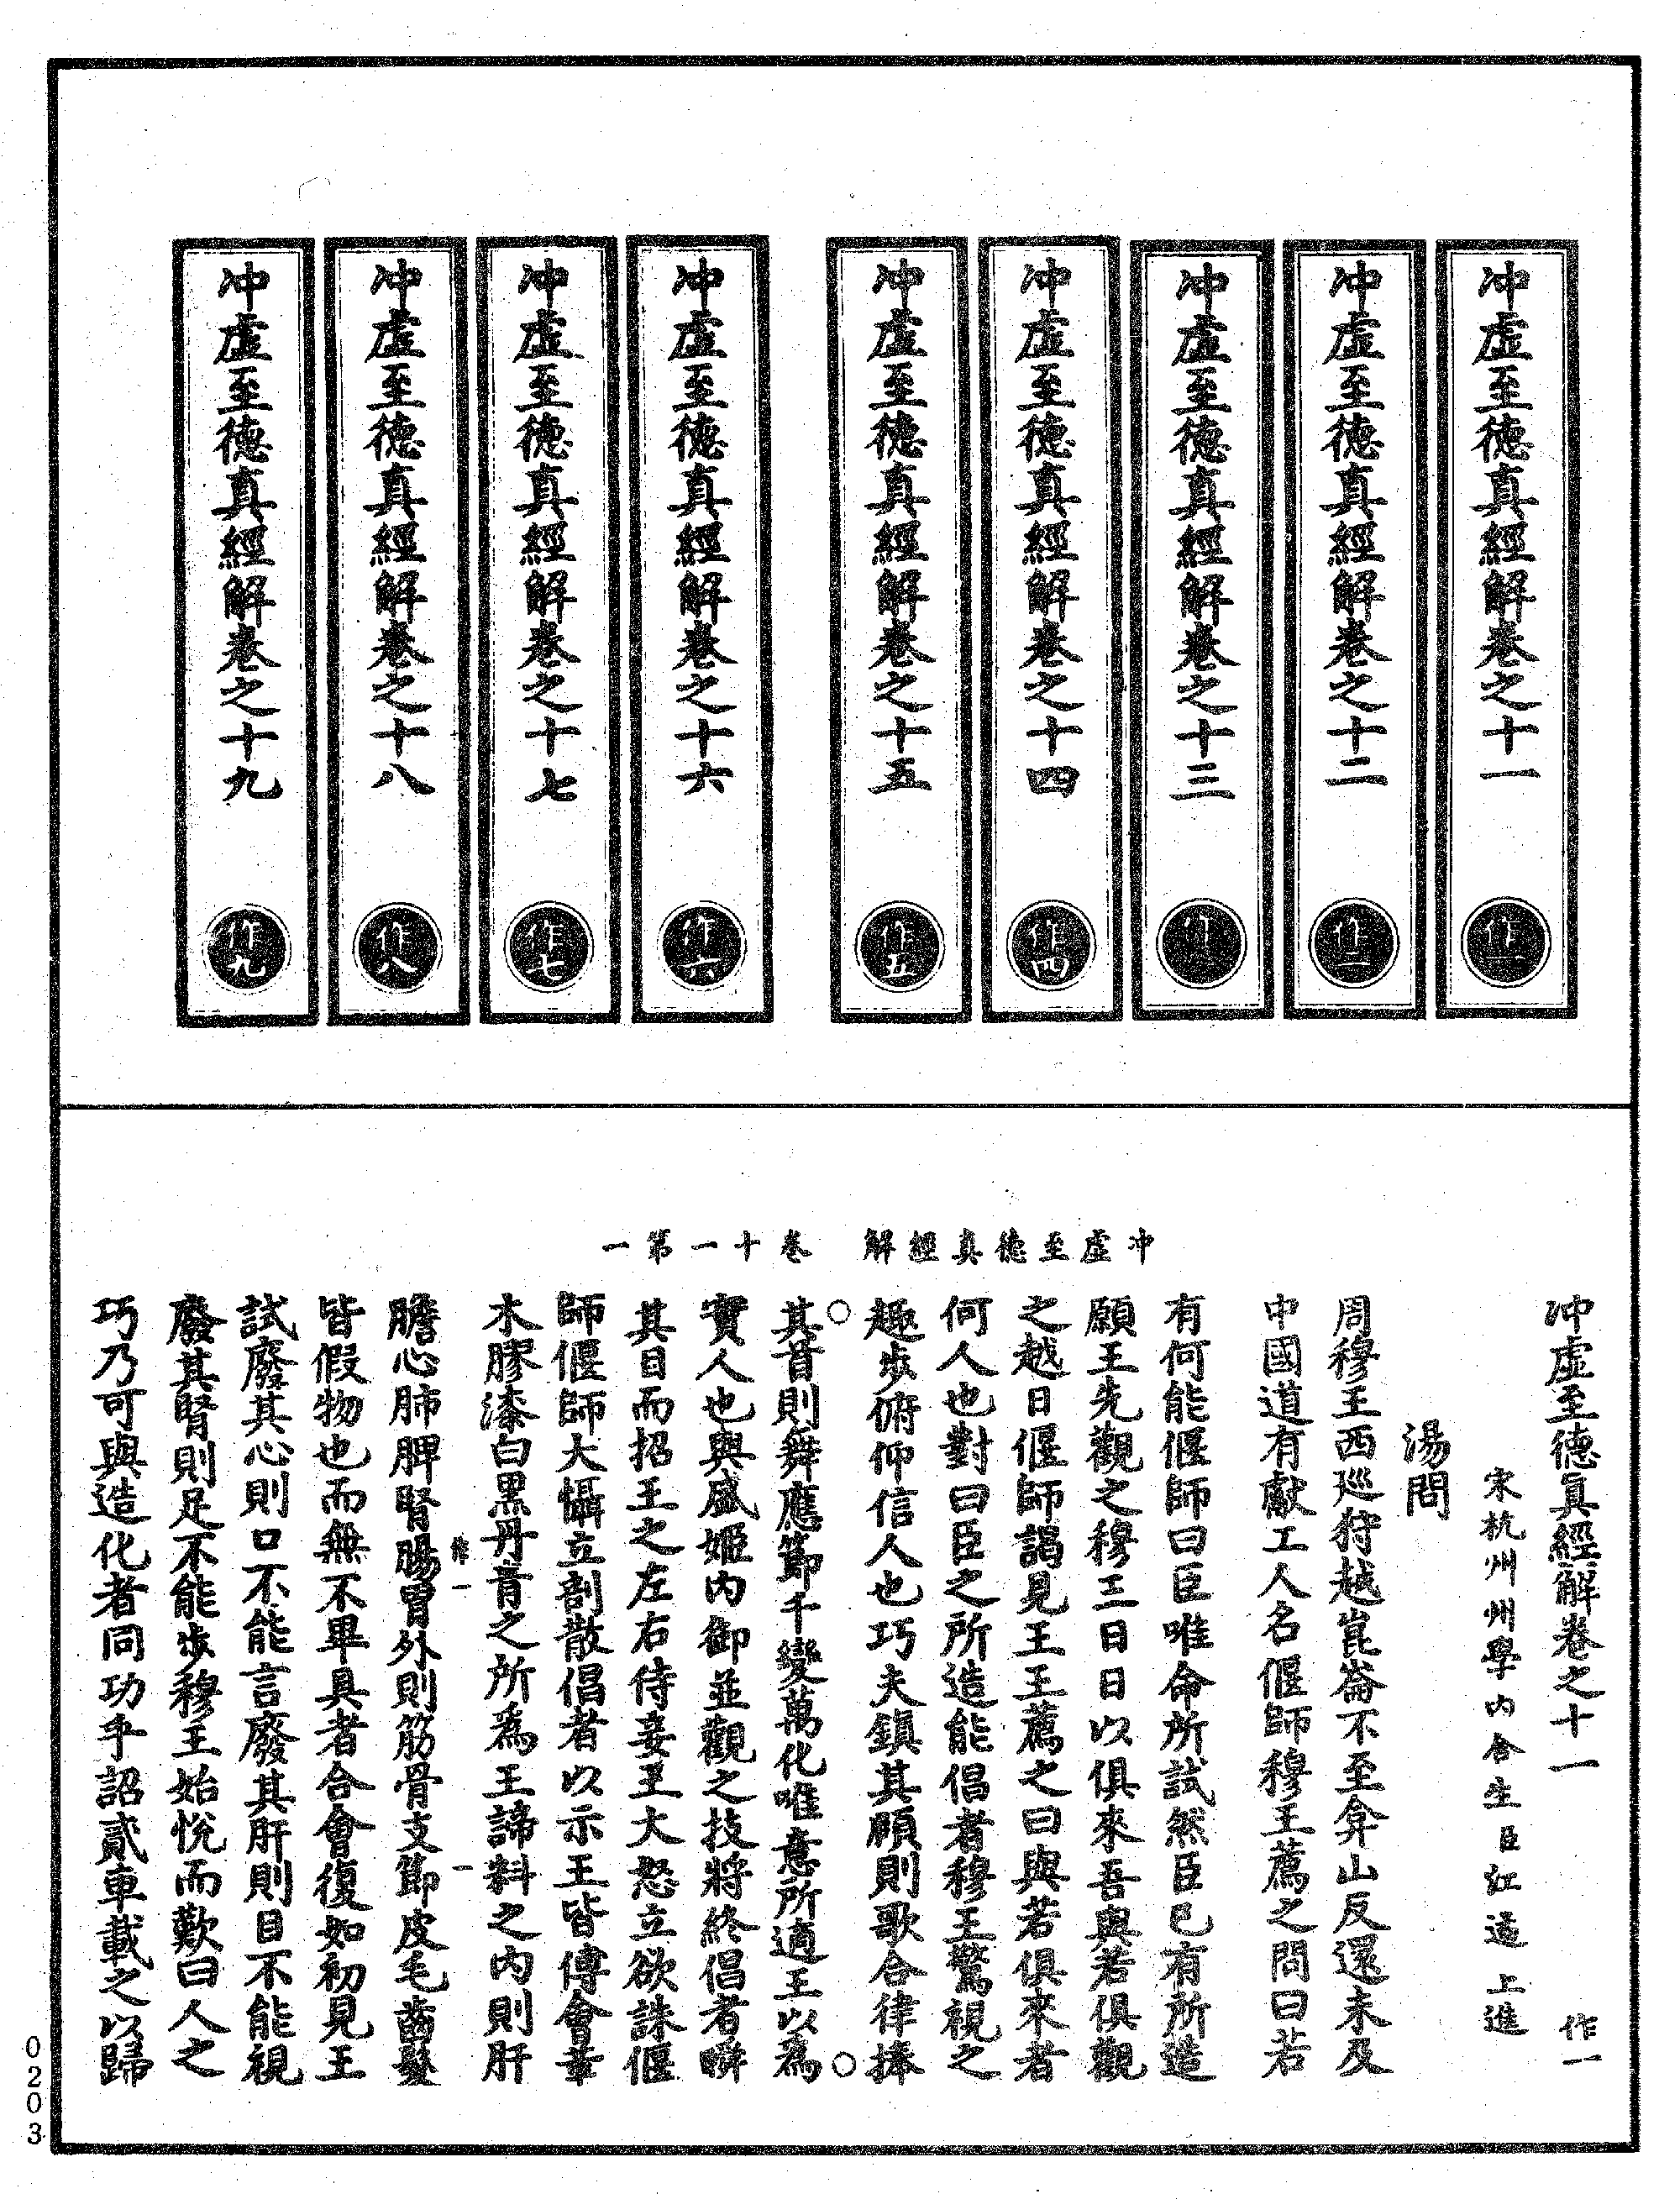 冲虛至德真經解卷之十一
作一
冲虛至德真經解卷之十二
作二
冲虛至德真經解卷之十三
冲虛至德真經解卷之十四
作四
冲虛至德真經解卷之十五
作五
冲虛至德真經解卷之十六
作六
冲虛至德真經解卷之十七
作七
冲虛至德真經解卷之十八
作八
冲虛至德真經解卷之十九
作九
冲虛至德真經解　卷十一第一
冲虛至德真經解卷之十一　作一
宋杭州州學內舍生臣江遹上進
湯問
周穆王西巡狩越崑崙不至弇山反還未及
中國道有獻工人名偃師穆王薦之問曰若
有何能偃師曰臣唯命所試然臣已有所造
願王先觀之穆王曰日以俱來吾與若俱觀
之越日偃師謁見王王薦之曰與若俱來者
何人也對曰臣之所造能倡者穆王驚視之
趣步俯仰信人也巧夫鎮其頤則歌合律捧
其首則舞應節千變萬化唯意所適王以為
實人也與盛姬內御並觀之技將終倡者瞬
其目而招王之左右侍妾王大怒立欲誅偃
師偃師大懾立剖散倡者以示王皆傅會革
木膠漆白黑丹青之所為王諦料之內則肝
作一　一
膽心肺脾腎腸胃外則筋骨支節皮毛齒髮
皆假物也而無不畢具者合會復如初見王
試廢其心則口不能言廢其肝則目不能視
廢其腎則足不能步穆王始悅而歎曰人之
巧乃可與造化者同功乎詔貳車載之以歸
0203